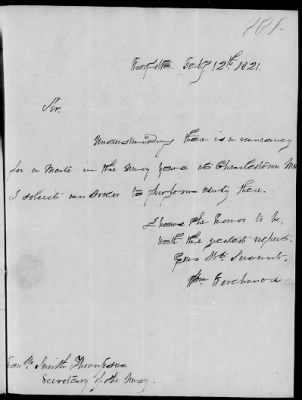 Feby 12th 1821.
Sir,
Understanding there is a vacancy
for a Master in the Navy Yard at Charlestown Ms
I solicit an order to perform duty there.
I have the honor to be,
with the greatest respect
Your Obt Servant.
Honble Smith Thompson
Secretary of the Navy.